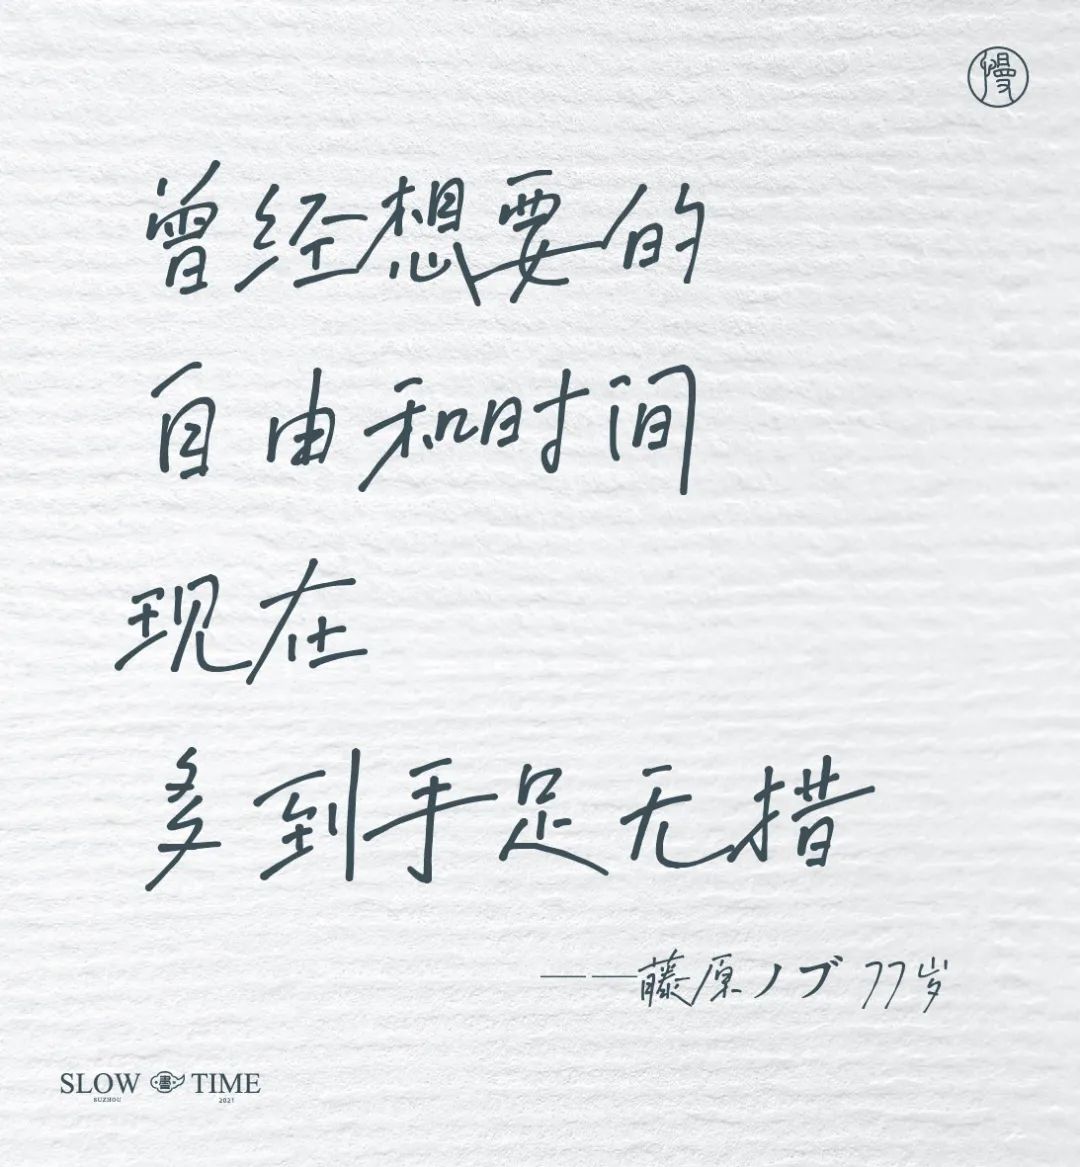 慢
曾经想要的
自由和时间
现在
多到手足无措
——藤原ノブ 77岁
SLOW TIME
SUZHOU 2021